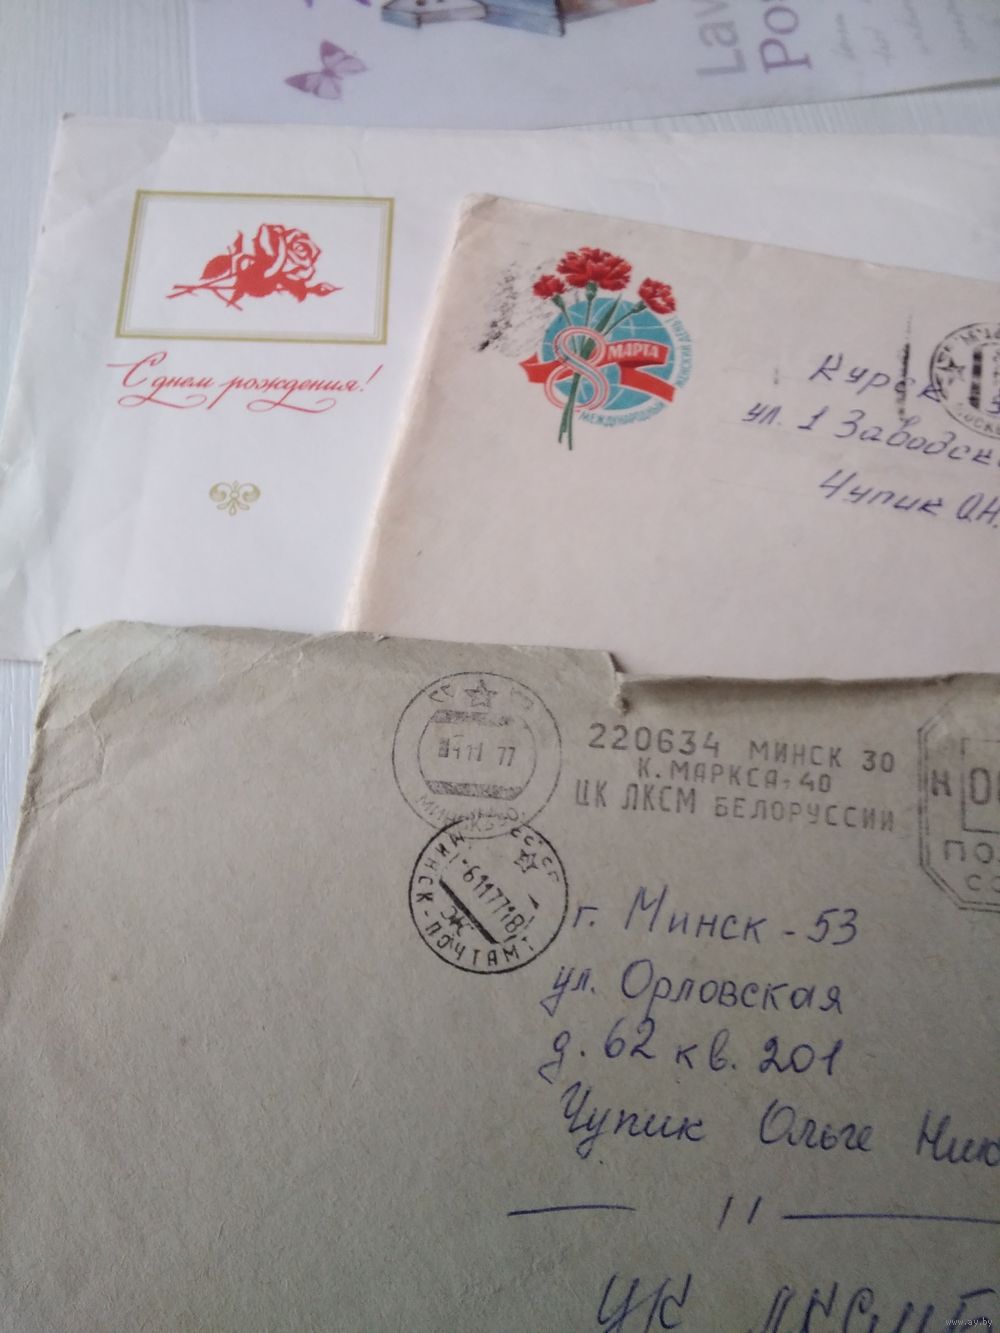 Lav
Po
С днем рождения!
8 МАРТА
МЕЖДУНАРОДНЫЙ ЖЕНСКИЙ ДЕНЬ
Курск
ул. 1 Заводск
Чупик О.Н.
220634 МИНСК 30
К. МАРКСА-40
ЦК ЛКСМ БЕЛОРУССИИ
77
МИНСК
СССР
-6117718
МИНСК-ПОЧТАМТ
ПО
г. Минск - 53
ул. Орловская
д. 62 кв. 201
Чупик Ольге Ник
— 11 —
ЦК ЛКСМБ
www.ay.by